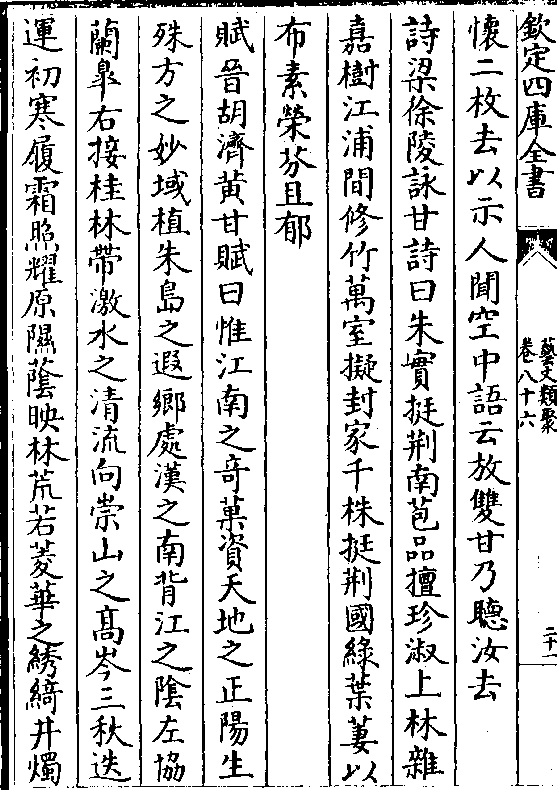 欽定四庫全書
藝文類聚
卷八十六
二十一
懷二枚去以示人聞空中語云放雙甘乃聽汝去
詩梁徐陵詠甘詩曰朱實挺荆南苞品擅珍淑上林雜
嘉樹江浦間修竹萬室擬封家千株挺荆國綠葉萋以
布素榮芬且郁
賦晉胡濟黄甘賦曰惟江南之竒菓資天地之正陽生
殊方之妙域植朱島之遐鄉處漢之南背江之陰左協
蘭臯右接桂林帶激水之清流向崇山之髙岑三秋迭
運初寒履霜照耀原隰䕃映林荒若菱華之綉綺井燭